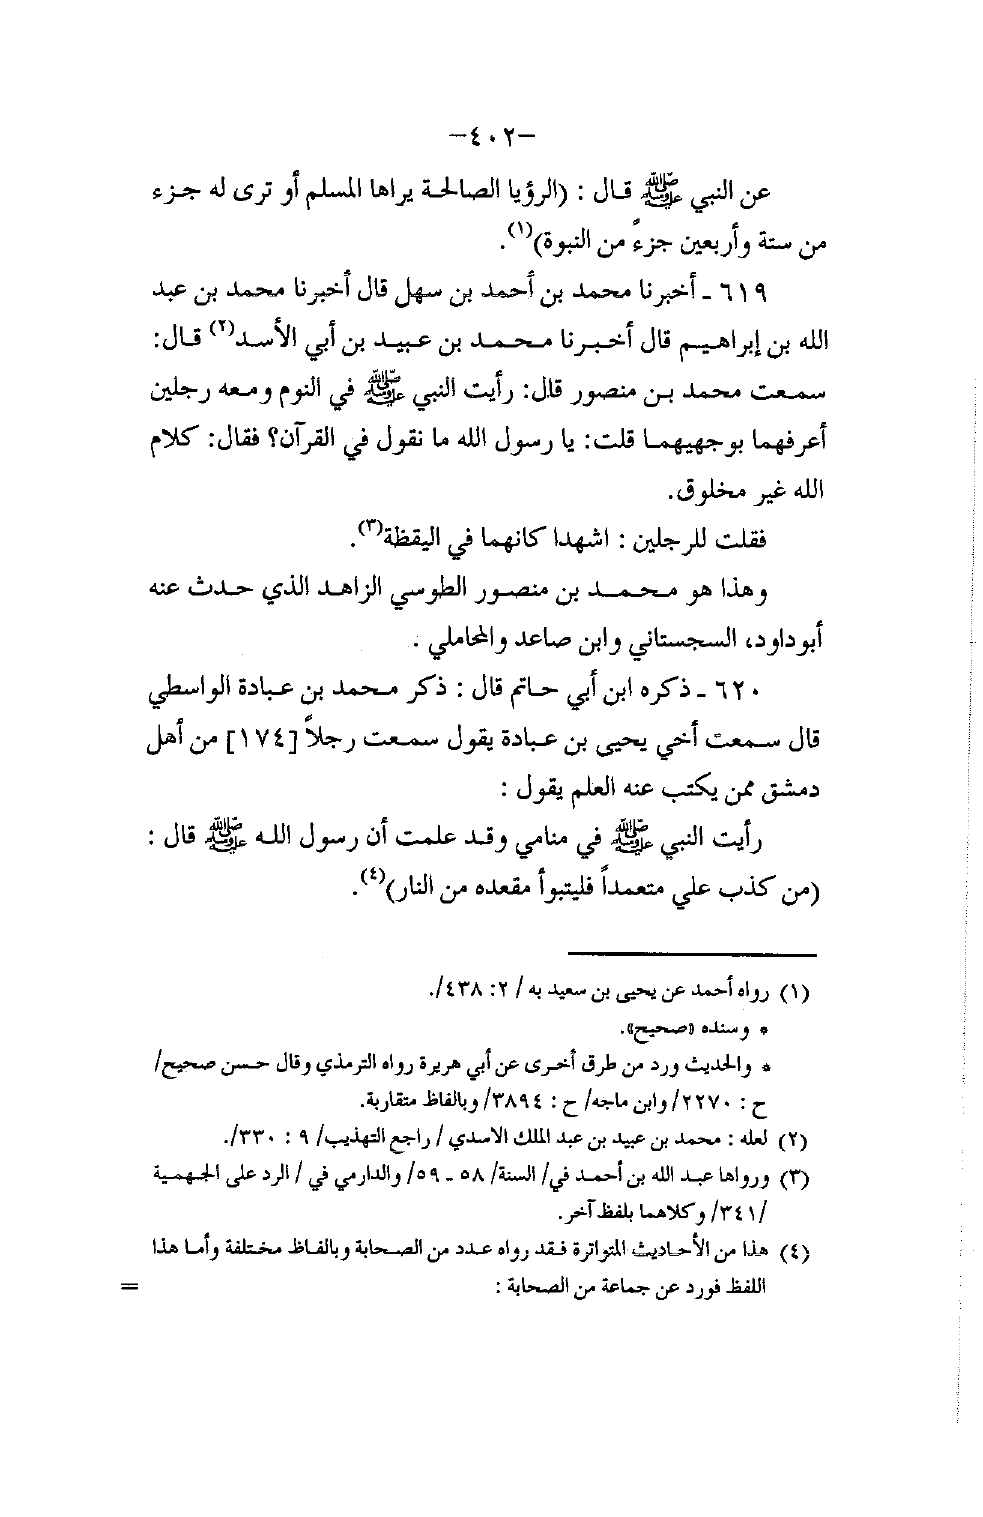 -٤٠٢-
عن النبي ﷺ قال : (الرؤيا الصالحة يراها المسلم أو ترى له جزء
من ستة وأربعين جزءً من النبوة)(١).
٦١٩ ـ أخبرنا محمد بن أحمد بن سهل قال أخبرنا محمد بن عبد
الله بن إبراهيم قال أخبرنا محمد بن عبيد بن أبي الأسد(٢) قال:
سمعت محمد بن منصور قال: رأيت النبي ﷺ في النوم ومعه رجلين
أعرفهما بوجهيهما قلت: يا رسول الله ما نقول في القرآن؟ فقال: كلام
الله غير مخلوق.
فقلت للرجلين : اشهدا كانهما في اليقظة(٣).
وهذا هو محمد بن منصور الطوسي الزاهد الذي حدث عنه
أبوداود، السجستاني وابن صاعد والمحاملي .
٦٢٠ ـ ذكره ابن أبي حاتم قال : ذكر محمد بن عبادة الواسطي
قال سمعت أخي يحيى بن عبادة يقول سمعت رجلاً [١٧٤] من أهل
دمشق ممن يكتب عنه العلم يقول :
رأيت النبي ﷺ في منامي وقد علمت أن رسول الله ﷺ قال :
(من كذب علي متعمداً فليتبوأ مقعده من النار)(٤).
(١) رواه أحمد عن يحيى بن سعيد به / ٢: ٤٣٨/.
* وسنده «صحيح».
* والحديث ورد من طرق أخرى عن أبي هريرة رواه الترمذي وقال حسن صحيح/
ح : ٢٢٧٠/ وابن ماجه/ ح : ٣٨٩٤/ وبالفاظ متقاربة.
(٢) لعله : محمد بن عبيد بن عبد الملك الاسدي / راجع التهذيب/ ٩ : ٣٣٠/.
(٣) ورواها عبد الله بن أحمد في/ السنة/ ٥٨ ـ ٥٩/ والدارمي في / الرد على الجهمية
/٣٤١/ وكلاهما بلفظ آخر.
(٤) هذا من الأحاديث المتواترة فقد رواه عدد من الصحابة وبالفاظ مختلفة وأما هذا
اللفظ فورد عن جماعة من الصحابة : =